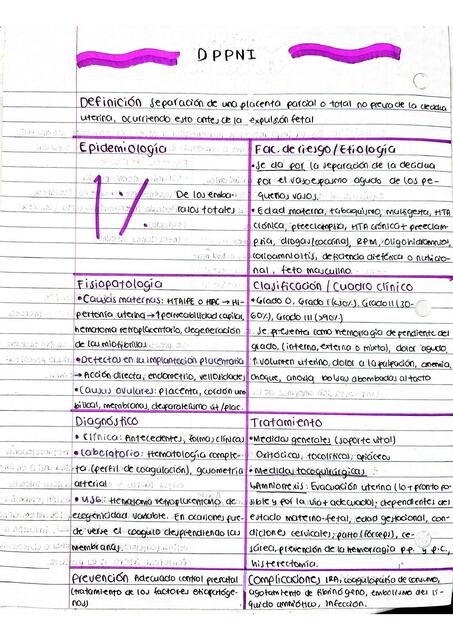 DPPNI
Definición Separación de una placenta parcial o total no previa de la decidua
uterina, ocurriendo esto antes de la expulsión fetal
Epidemiología
1%
De los emba-
razos totales
Fac. de riesgo / Etiología
• Se da por la separación de la decidua
por el vasoespasmo agudo de los pe-
queños vasos.
• Edad materna, tabaquismo, multigesta, HTA
crónica, preeclampsia, HTA crónica + preeclam-
psia, drogas (cocaína), RPM, Oligohidramnios,
corioamnioitis, deficiencia dietética o nutricio-
nal, feto masculino.
Fisiopatología
• Causas maternas: HTAIPE o HAC → Hi-
pertonía uterina → ↑ permeabilidad capilar,
hematoma retroplacentario, degeneración
de las miofibrillas.
• Defectos en la implantación placentaria
→ Acción directa, endometrio, vellosidades
• Causas ovulares: placenta, cordón um-
bilical, membranas, desproteismo ut/plac.
Clasificación / Cuadro clínico
• Grado 0, Grado I (<30%), Grado II (30-
60%), Grado III (>90%)
Se presenta como hemorragia dependiente del
grado, (interna, externo o mixta), dolor agudo,
↑ volumen uterino, dolor a la palpación, anemia,
choque, anoxia bolsas abombadas al tacto
Diagnóstico
• Clínica: Antecedentes, formas clínicas
• Laboratorio: Hematología comple-
ta (perfil de coagulación), gasometría
arterial
• USG: Hematoma retroplacentario de
ecogenicidad variable. En ocasiones pue-
de verse el coagulo desprendiendo las
membranas.
Tratamiento
• Medidas generales (soporte vital)
Oxitócicos, tocolíticos, opiáceos
• Medidas tocoquirúrgicas
↳ Amniorrexis: Evacuación uterina (lo + pronto po-
sible y por la vía + adecuada); dependientes del
estado materno-fetal, edad gestacional, con-
diciones cervicales; parto (fórceps), ce-
sárea, prevención de la hemorragia p.p. y p.c.,
histerectomía.
Prevención Adecuado control prenatal
(tratamiento de los factores etiopatóge-
nos)
Complicaciones IRA, coagulopatía de consumo,
agotamiento de fibrinógeno, embolismo del lí-
quido amniótico, infección.